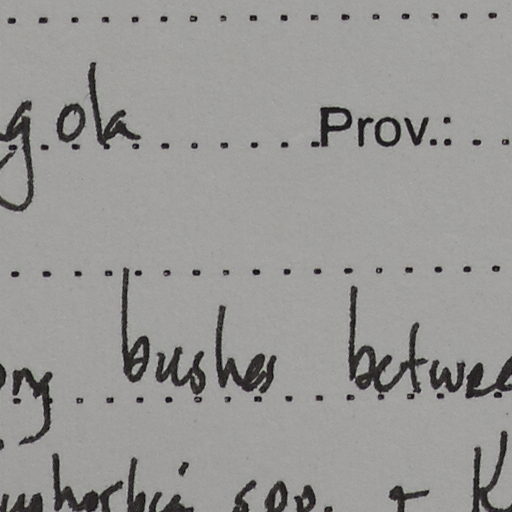 gola Prov.:
ong bushes betwee
uphorbia spp. + K